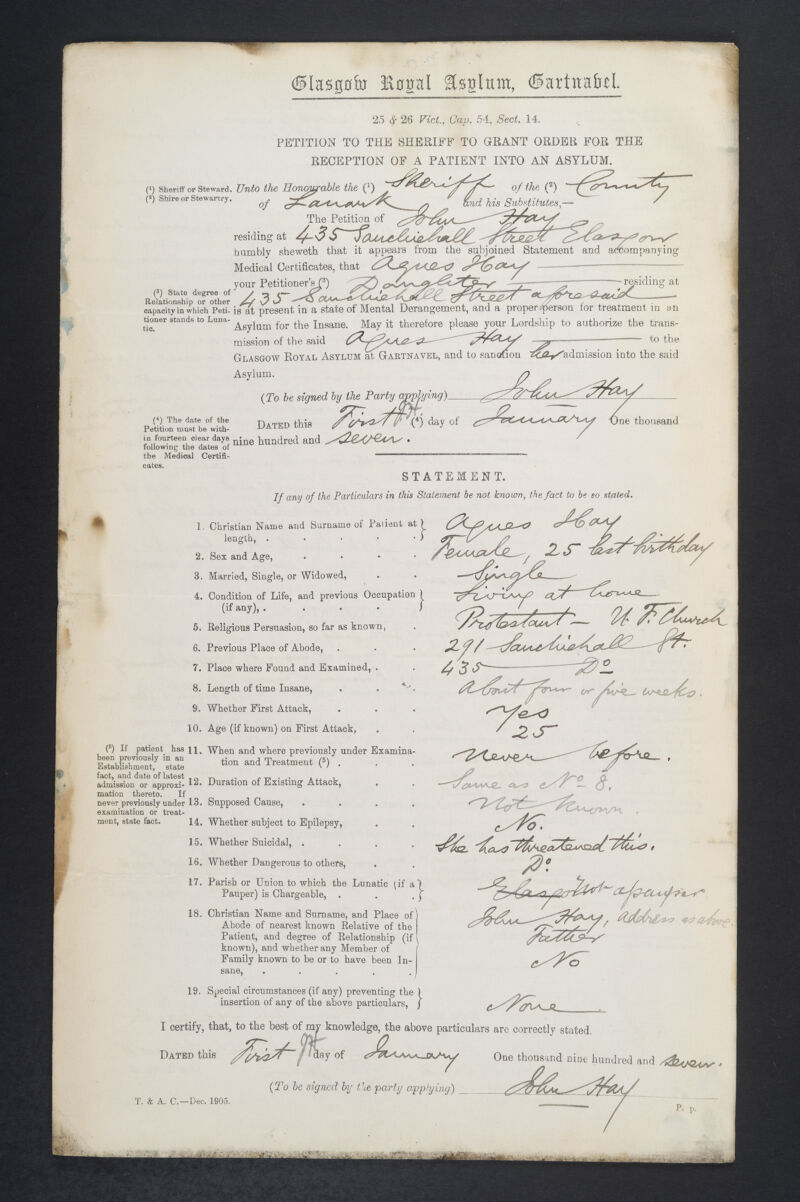 Glasgow Royal Asylum, Gartnabel.
25 & 26 Vict., Cap. 54, Sect. 14.
PETITION TO THE SHERIFF TO GRANT ORDER FOR THE
RECEPTION OF A PATIENT INTO AN ASYLUM.
(¹) Sheriff or Steward.
(²) Shire or Stewartry.
Unto the Honourable the (¹) Sheriff of the (²) County
of Lanark and his Substitutes,—
The Petition of John Hay
residing at 435 Sauchiehall Street Glasgow
humbly sheweth that it appears from the subjoined Statement and accompanying
Medical Certificates, that Agnes Hay
your Petitioner's (³) Daughter residing at
435 Sauchiehall Street aforesaid
(³) State degree of
Relationship or other
capacity in which Peti-
tioner stands to Luna-
tic.
is at present in a state of Mental Derangement, and a proper person for treatment in an
Asylum for the Insane. May it therefore please your Lordship to authorize the trans-
mission of the said Agnes Hay to the
GLASGOW ROYAL ASYLUM at GARTNAVEL, and to sanction her admission into the said
Asylum.
(To be signed by the Party applying) John Hay
(⁴) The date of the
Petition must be with-
in fourteen clear days
following the dates of
the Medical Certifi-
cates.
DATED this First (⁴) day of January One thousand
nine hundred and seven.
STATEMENT.
If any of the Particulars in this Statement be not known, the fact to be so stated.
1. Christian Name and Surname of Patient at
length, . . . . . Agnes Hay
2. Sex and Age, . . . . Female, 25 last birthday
3. Married, Single, or Widowed, . . Single
4. Condition of Life, and previous Occupation
(if any), . . . . . Living at home
5. Religious Persuasion, so far as known, . Protestant – U. F. Church
6. Previous Place of Abode, . . . 291 Sauchiehall St.
7. Place where Found and Examined, . . 435 Do
8. Length of time Insane, . . . About four or five weeks.
9. Whether First Attack, . . . Yes
10. Age (if known) on First Attack, . . 25
(⁵) If patient has
been previously in an
Establishment, state
fact, and date of latest
admission or approxi-
mation thereto. If
never previously under
examination or treat-
ment, state fact.
11. When and where previously under Examina-
tion and Treatment (⁵) . . . never before.
12. Duration of Existing Attack, . . Same as No 8.
13. Supposed Cause, . . . . Not known.
14. Whether subject to Epilepsy, . . No.
15. Whether Suicidal, . . . . She has threatened this.
16. Whether Dangerous to others, . . Do.
17. Parish or Union to which the Lunatic (if a
Pauper) is Chargeable, . . . Not a pauper
18. Christian Name and Surname, and Place of
Abode of nearest known Relative of the
Patient, and degree of Relationship (if
known), and whether any Member of
Family known to be or to have been In-
sane, . . . . .
John Hay, address as above.
Father
No
19. Special circumstances (if any) preventing the
insertion of any of the above particulars, None
I certify, that, to the best of my knowledge, the above particulars are correctly stated.
DATED this First day of January One thousand nine hundred and seven.
(To be signed by the party applying) John Hay
T. & A. C.—Dec. 1905.
P. p.